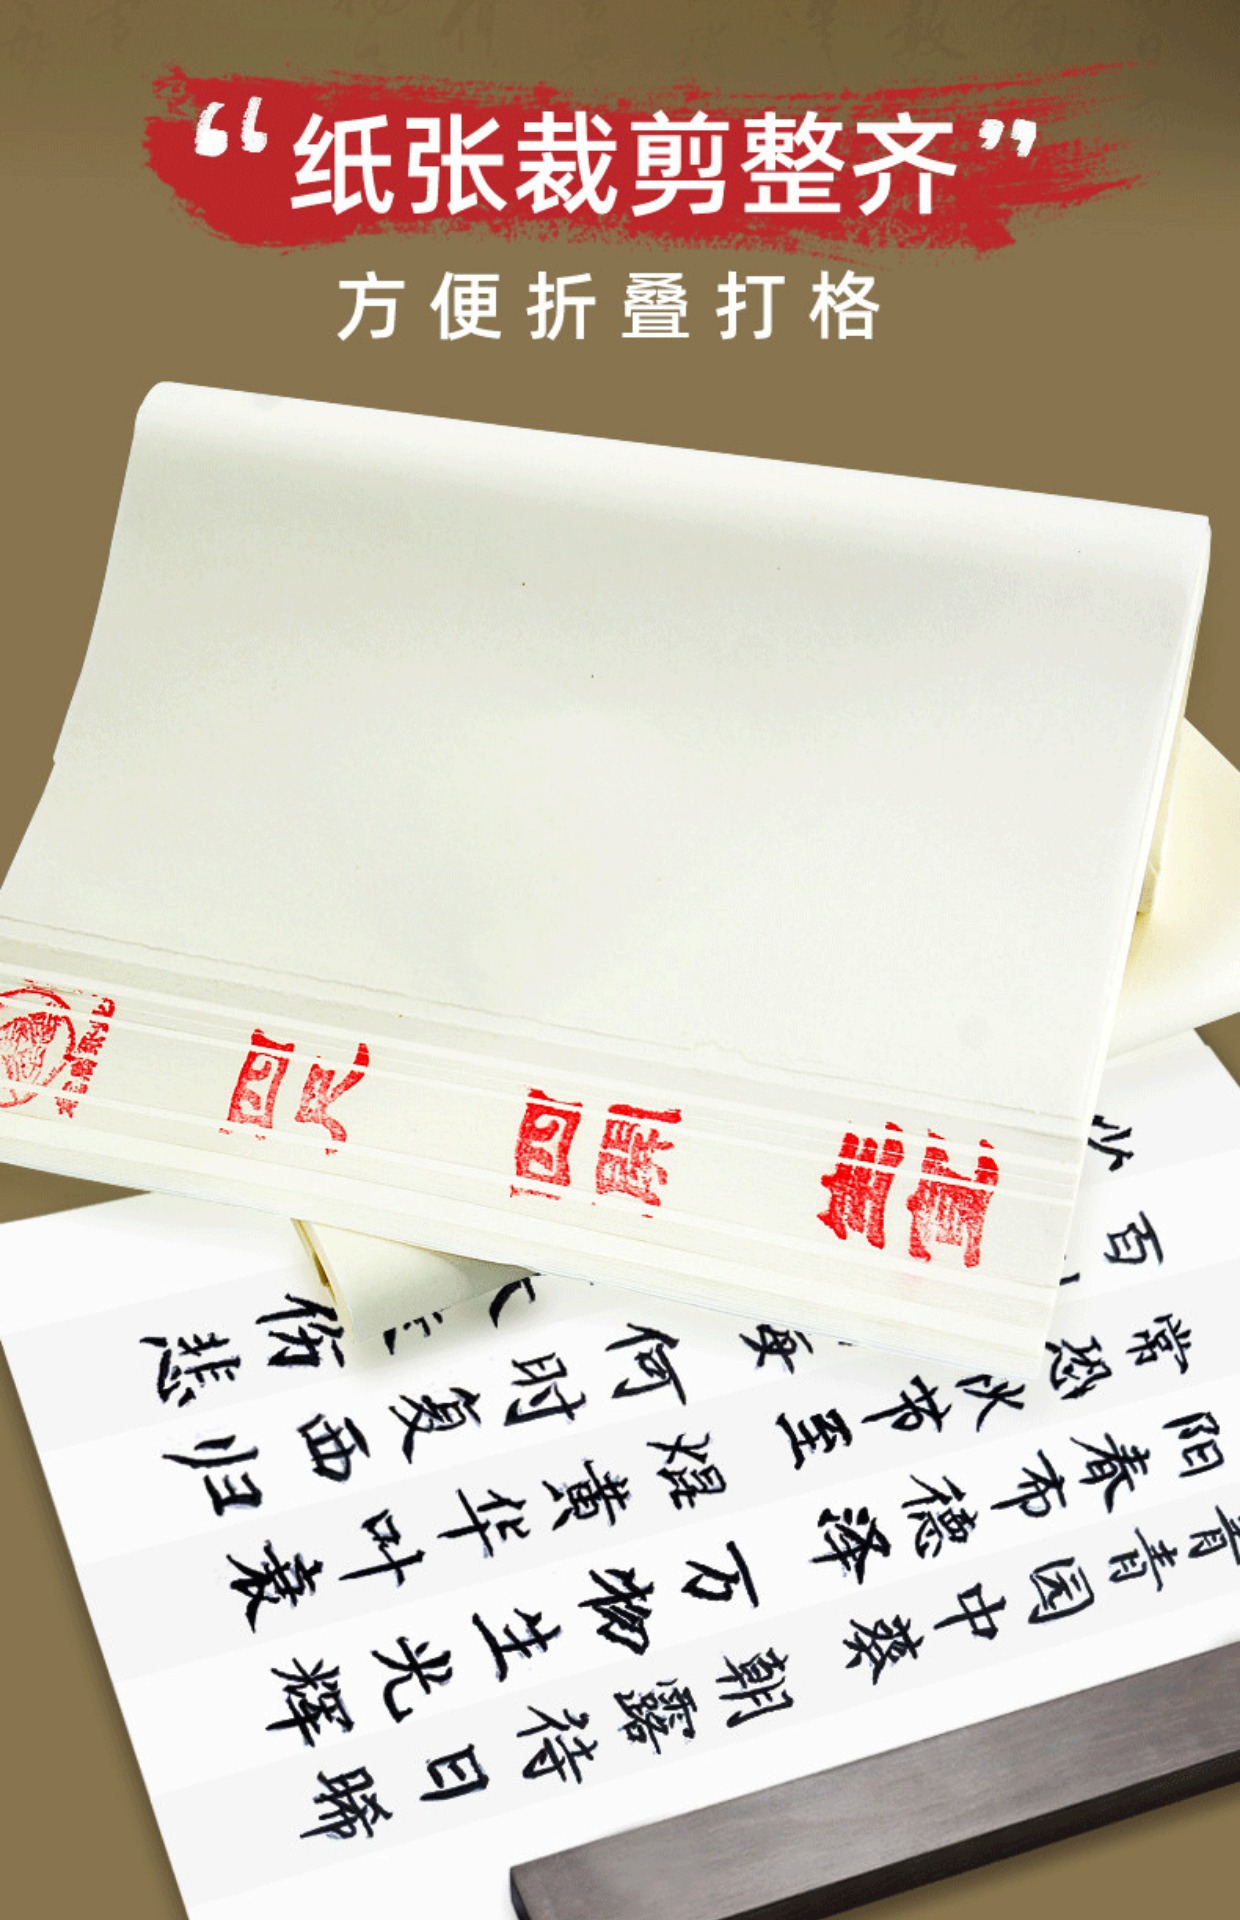 “纸张裁剪整齐”
方便折叠打格
四尺
四開
生宣
青青园中葵朝露待日晞
阳春布德泽万物生光辉
常恐秋节至焜黄华叶衰
百
何时复西归
少
伤悲